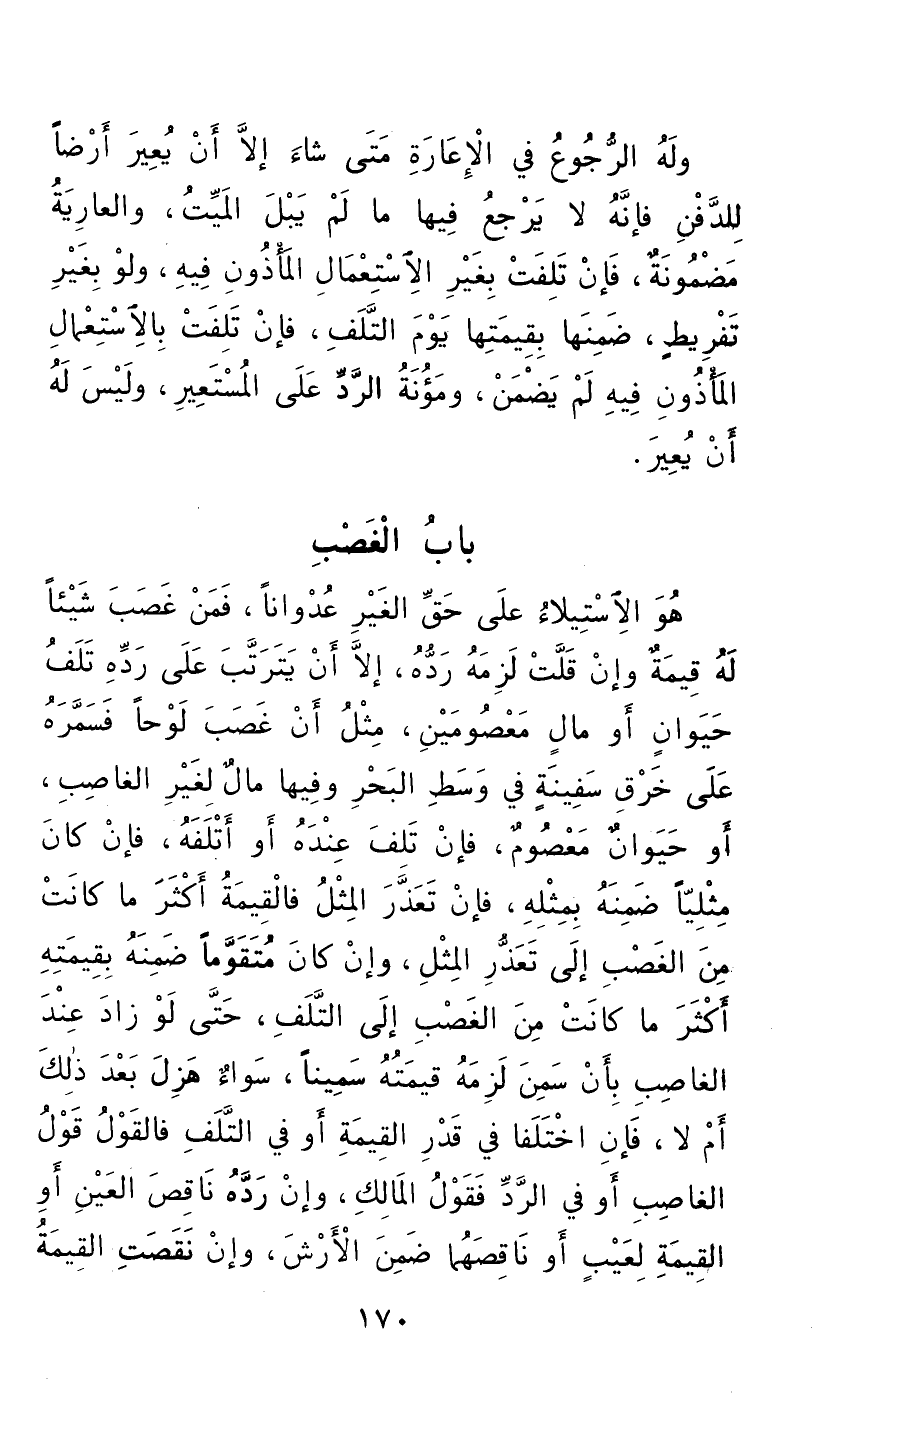 ولَهُ الرُّجُوعُ في الْإِعَارَةِ مَتَى شاءَ إلاَّ أَنْ يُعِيرَ أَرْضاً
لِلدَّفْنِ فإنَّهُ لا يَرْجعُ فِيها ما لَمْ يَبْلَ المَيِّتُ، والعارِيَةُ
مَضْمُونَةٌ، فَإنْ تَلِفَتْ بِغَيْرِ الِاسْتِعْمَالِ المَأْذُونِ فِيهِ، ولوْ بِغَيْرِ
تَفْرِيطٍ، ضَمِنَها بِقِيمَتِها يَوْمَ التَّلَفِ، فإنْ تَلَفَتْ بِالِاسْتِعْمالِ
المَأْذُونِ فِيهِ لَمْ يَضْمَنْ، ومَؤُنَةُ الرَّدِّ عَلَى المُسْتَعِيرِ، ولَيْسَ لَهُ
أَنْ يُعِيرَ.
بابُ الْغَصْبِ
هُوَ الِاسْتِيلاءُ علَى حَقِّ الغَيْرِ عُدْواناً، فَمَنْ غَصَبَ شَيْئاً
لَهُ قِيمَةٌ وإنْ قَلَّتْ لَزِمَهُ رَدُّهُ، إلاَّ أَنْ يَتَرَتَّبَ عَلَى رَدِّهِ تَلَفُ
حَيَوانٍ أَو مالٍ مَعْصُومَيْنِ، مِثْلُ أَنْ غَصَبَ لَوْحاً فَسَمَّرَهُ
عَلَى خَرْقِ سَفِينَةٍ في وَسَطِ البَحْرِ وفِيها مالٌ لِغَيْرِ الغاصِبِ،
أَو حَيَوانٌ مَعْصُومٌ، فإنْ تَلفَ عِنْدَهُ أَو أَتْلَفَهُ، فإنْ كانَ
مِثْلِيّاً ضَمِنَهُ بِمِثْلِهِ، فإنْ تَعَذَّرَ المِثْلُ فالْقِيمَةُ أَكْثَرَ ما كانَتْ
مِنَ الغَصْبِ إلَى تَعَذُّرِ المِثْلِ، وإنْ كانَ مُتَقَوَّماً ضَمِنَهُ بِقِيمَتِهِ
أَكْثَرَ ما كانَتْ مِنَ الغَصْبِ إلَى التَّلَفِ، حَتَّى لَوْ زادَ عِنْدَ
الغاصِبِ بِأَنْ سَمِنَ لَزِمَهُ قيمَتُهُ سَمِيناً، سَواءٌ هَزِلَ بَعْدَ ذٰلِكَ
أَمْ لا، فَإنِ اخْتَلَفا في قَدْرِ القِيمَةِ أَو في التَّلَفِ فالقَوْلُ قَوْلُ
الغاصِبِ أَو في الرَّدِّ فَقَوْلُ المَالِكِ، وإنْ رَدَّهُ نَاقِصَ العَيْنِ أَوِ
القِيمَةِ لِعَيْبٍ أَو نَاقِصَهُما ضَمِنَ الْأَرْشَ، وإنْ نَقَصَتِ القِيمَةُ
١٧٠